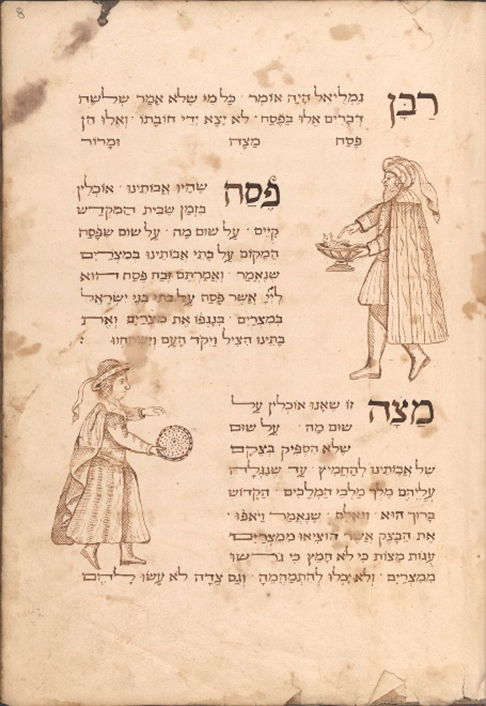 8
רבן גמליאל היה אומר · כל מי שלא אמר שלשה
דברים אלו בפסח · לא יצא ידי חובתו · ואלו הן
פסח מצה ומרור
פסח שהיו אבותינו · אוכלין
בזמן שבית המקדש
קיים · על שום מה · על שום שפסח
המקום על בתי אבותינו במצרים
שנאמר · ואמרתם זבח פסח הוא
לייי אשר פסח על בתי בני ישראל
במצרים · בנגפו את מצרים ואת
בתינו הציל ויקד העם וישתחוו :
מצה זו שאנו אוכלין על
שום מה · על שום
שלא הספיק בצקם
של אבותינו להחמיץ · עד שנגלה
עליהם מלך מלכי המלכים · הקדוש
ברוך הוא · וגאלם · שנאמר ויאפו ·
את הבצק אשר הוציאו ממצרים
עגות מצות כי לא חמץ כי גרשו
ממצרים · ולא יכלו להתמהמה · וגם צדה לא עשו להם